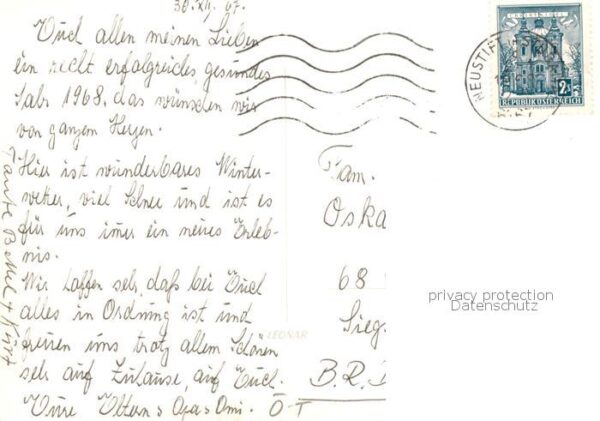 30.XII.67.
Euch allen meinen Lieben
ein recht erfolgreiches, gesundes
Jahr 1968, das wünschen wir
von ganzem Herzen.
Hier ist wunderbares Winter-
wetter, viel Schnee und ist es
für uns immer ein neues Erleb-
nis.
Wir hoffen sehr, daß bei Euch
alles in Ordnung ist und
freuen uns trotz allem Schönen
sehr auf Zuhause, auf Euch.
Eure Eltern, Opa, Omi. Ö-T
Tante Bettel + Kurt
Fam.
Oska
68
Sieg
B.R.D
LEONAR
CHRISTKINDL
2S
REPUBLIK ÖSTERREICH
NEUSTIFT
privacy protection
Datenschutz